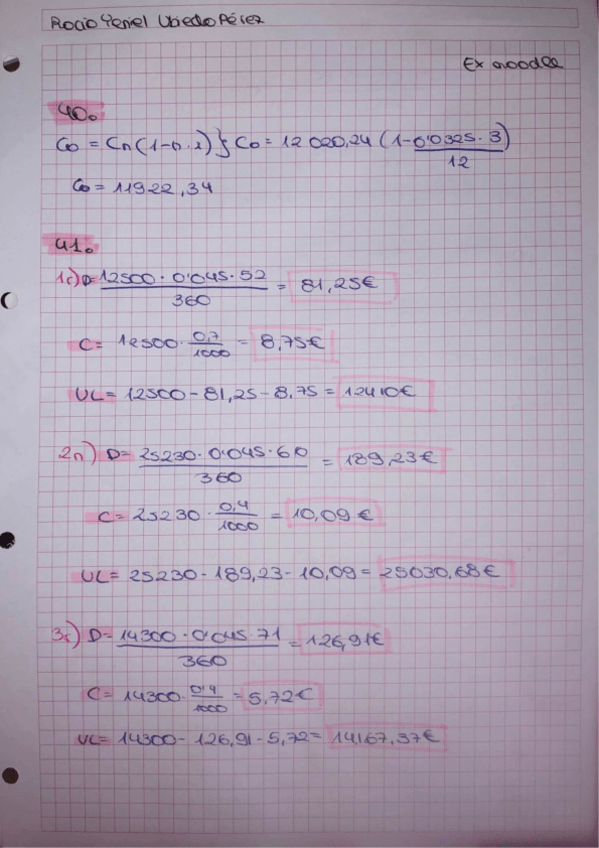 Rocio Yenel Ubiedo Pérez
Ex moodle
40.
Co = Cn (1-n·i) } Co = 12 020,24 (1-0'0325·3/12)
Co = 11922,34
41.
1c) D= 12500·0'045·52/360 = 81,25€
C= 12500·0,7/1000 = 8,75€
VL= 12500-81,25-8,75= 12410€
2n) D= 25230·0'045·60/360 = 189,23€
C= 25230·0,4/1000 = 10,09€
VL= 25230-189,23-10,09= 25030,68€
3c) D= 14300·0'045·71/360 = 126,91€
C= 14300·0,4/1000 = 5,72€
VL= 14300-126,91-5,72= 14167,37€